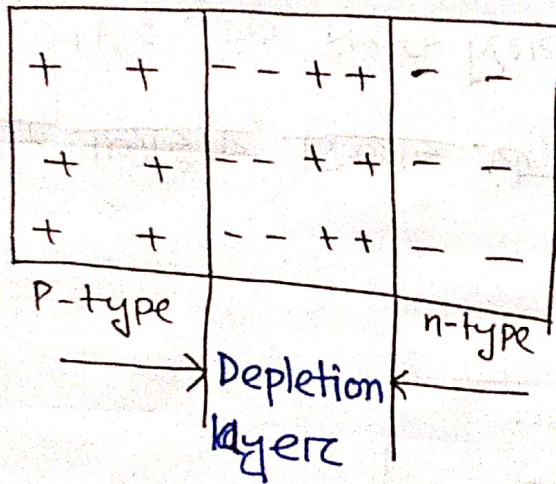 + + - - + + - -
+ + - - + + - -
+ + - - + + - -
P-type
n-type
Depletion
layerc